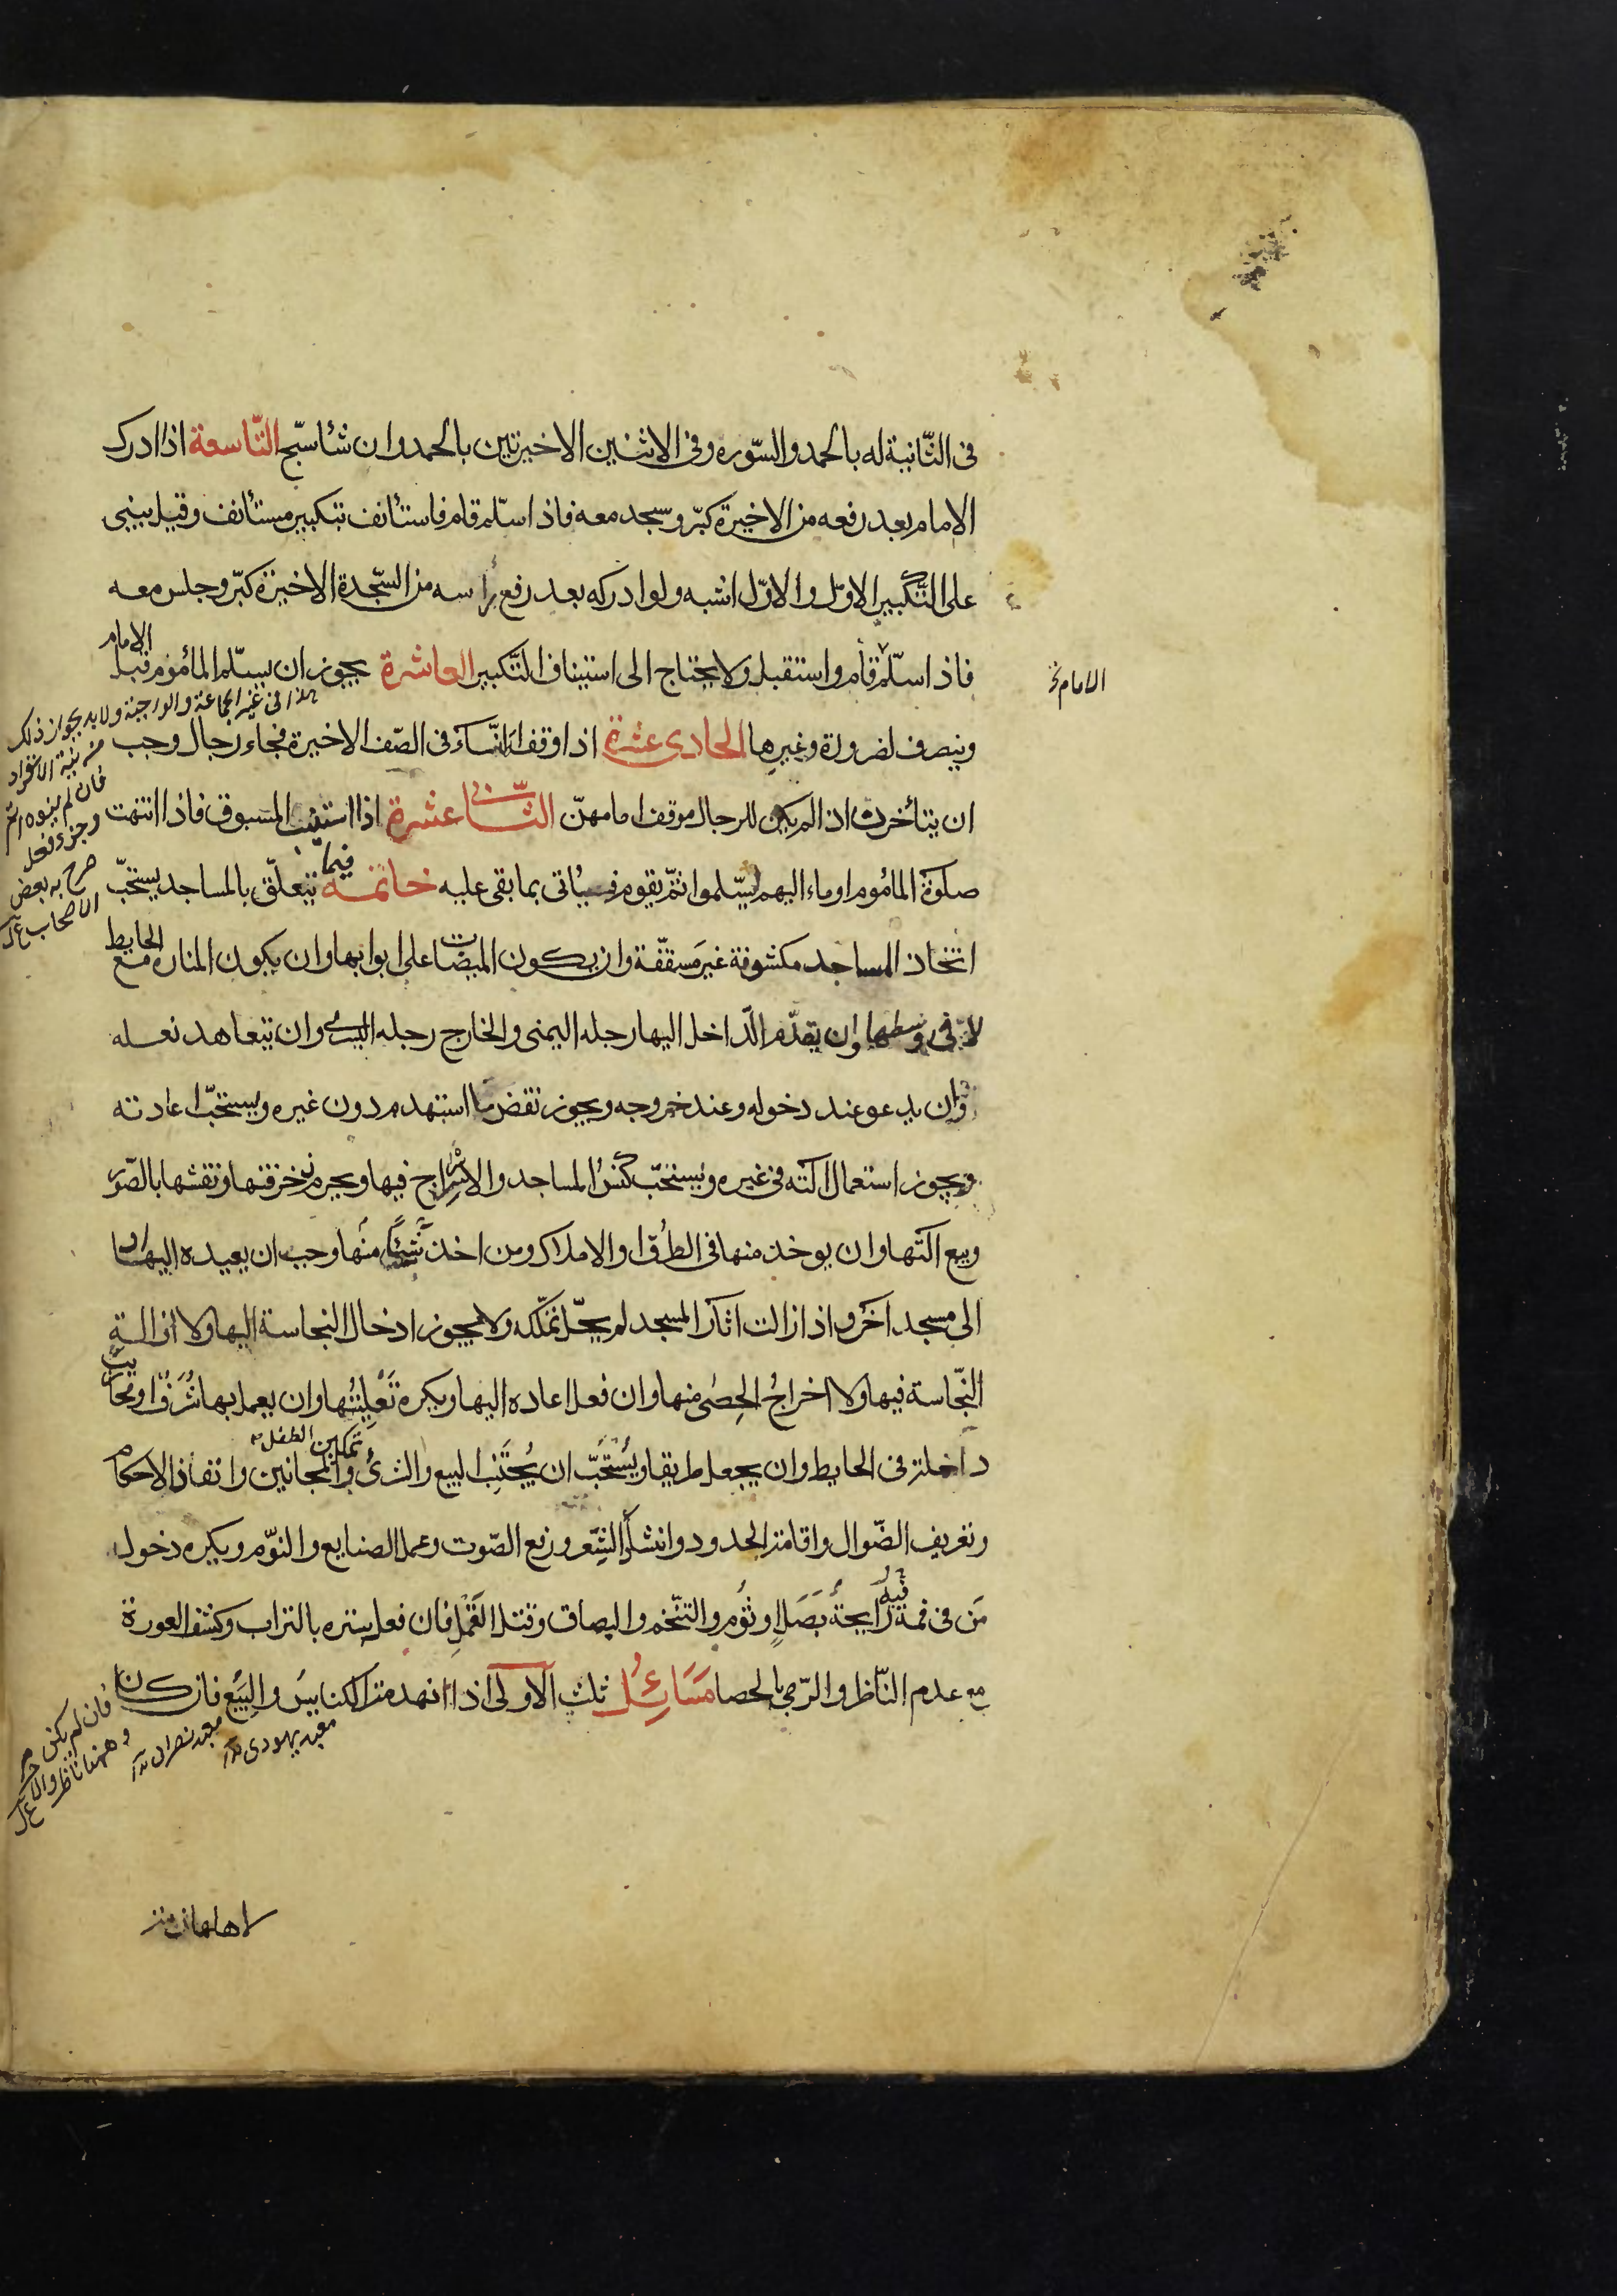 فى الثّانية له بالحمد والسّوره وفى الاثنين الاخيرتين بالحمد وان شأ سبّح التّاسعة اذا ادرك
الامام بعد رفعه من الاخيرة كبّر وسجد معه فاذا سلّم قام فاستئانف بتكبير مستأنف وقيل يبنى
على التّكبير الاوّل والاوّل اشبه ولو ادركه بعد رفع رأسه من السّجدة الاخيرة كبّر وجلس معه
فاذا سلّم قام واستقبل ولا يحتاج الى استيناف التّكبير العاشرة يجوز ان يسلّم المأموم قبل الامام
الامام خ
وينصرف لضرورة وغيرها الحادى عشرة اذا وقف النّسآء فى الصّف الاخيرة فجاء رجال وجب
هذا فى غير الجماعة الواجبة ولا بد بجواز ذلك
من نية الانفراد
فان لم ينوه اثم
ان يتأخرن اذا لم يكن للرجال موقف امامهنّ الثّانى عشرة اذا استنيب المسبوق فاذا انتهت
صلوة المأموم اوماء اليهم ليسّلموا ثمّ يقوم فيأتى بما بقى عليه خاتمة فيما يتعلّق بالمساجد يستحبّ
صرح به بعض
الاصحاب
اتخاذ المساجد مكشوفة غير مسقفّة وان يكون الميضات على ابوابها وان يكون المناره مع الحايط
لا فى وسطها وان يقدّم الدّاخل اليها رجله اليمنى والخارج رجله اليسرى وان يتعاهد نعله
وان يدعو عند دخوله وعند خروجه ويجوز نقض ما استهدم دون غيره ويستحبّ اعادته
ويجوز استعمال آلته فى غيره ويستحبّ كنس المساجد والاسراج فيها ويحرم زخرفتها ونقشها بالصّور
وبيع آلتها وان يوخذ منها فى الطرق والاملاك ومن اخذ شيئًا منها وجب ان يعيده اليها او
الى مسجد آخر واذا زالت اثار المسجد لم يحلّ تملّكه ولا يجوز ادخال النجاسة اليها ولا ازالة
النّجاسة فيها ولا اخراج الحصى منها وان فعل اعاده اليها ويكره تعليتها وان يعمل بها شُرَف او محاريب
داخلة فى الحايط وان يجعل طريقا ويستحبّ ان يُجتَنب البيع والشرى وتمكين الطفل والمجانين وانفاذ الاحكام
وتعريف الضّوال واقامة الحدود وانشاد الشّعر ورفع الصّوت وعمل الصنايع والنّوم ويكره دخول
مَن فى فمه رايحة بَصَلٍ او ثُوم والتنخّم والبصاق وقتل القَمْل فان فعل ستره بالتراب وكشف العورة
مع عدم النّاظر والرّمى بالحصا مَسَائِل ثلث الاولى اذا انهدمت الكنايس والبِيَع فان كان
معبد يهودى
معبد نصرانى
فان لم يكن
وههنا ناظر والا
لاهلها ذمة